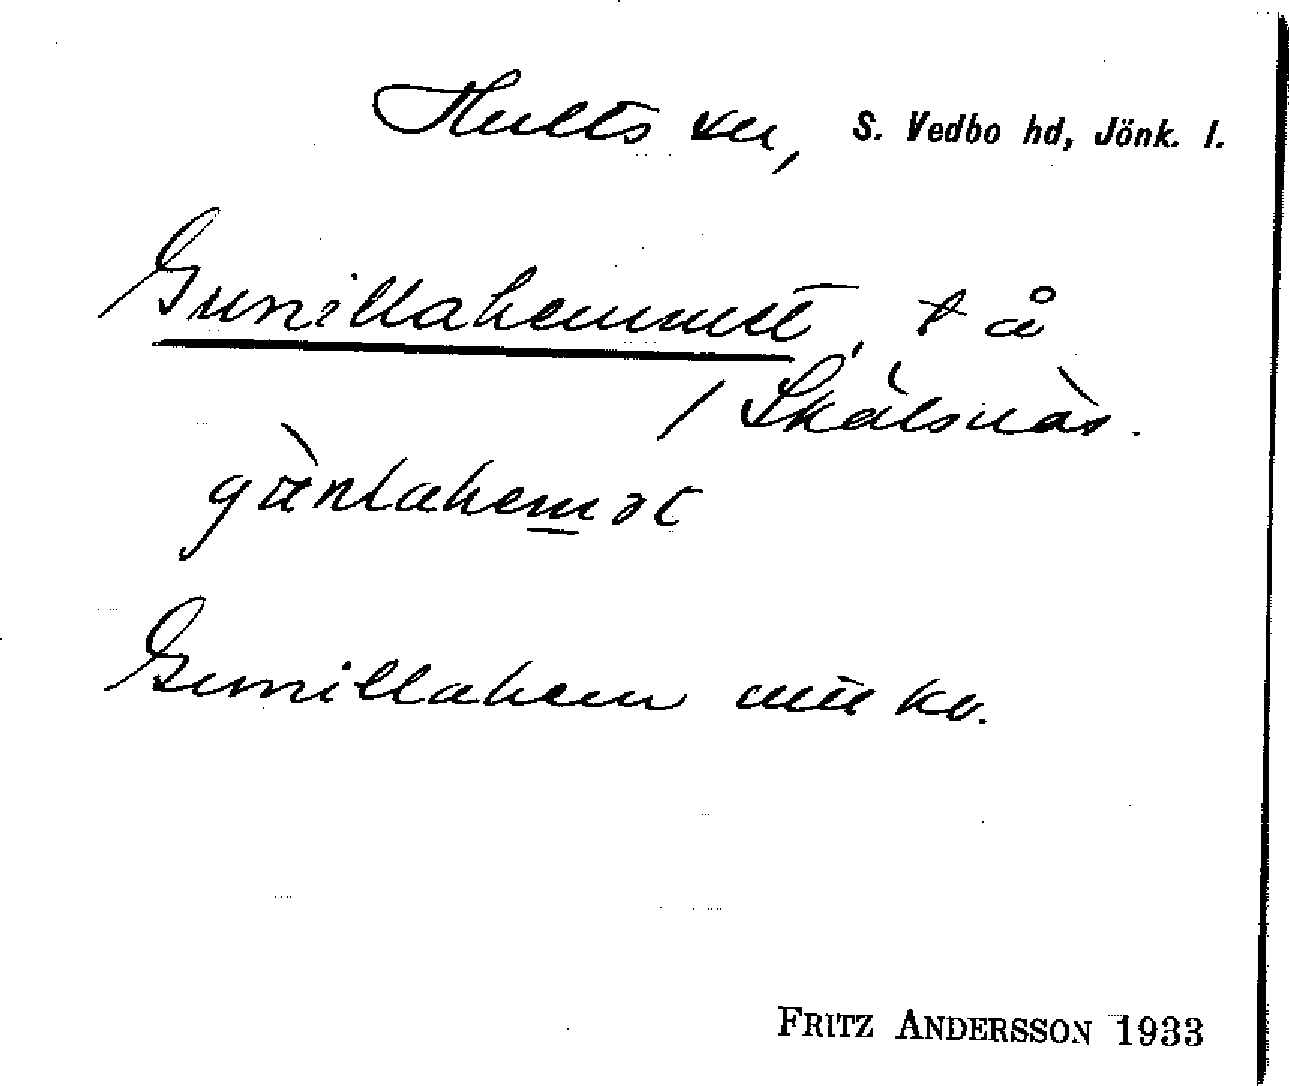 Hults sn, S. Vedbo hd, Jönk. l.
Gunillahemmet, t å
/ Skälsnäs.
gä̀nlahemət
Gunillahem
FRITZ ANDERSSON 1933